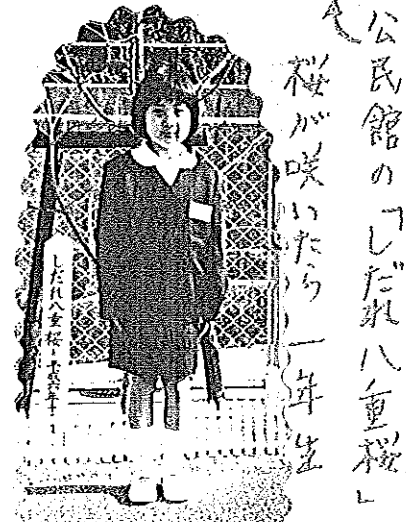 公民館の「しだれ八重桜」
桜が咲いたら一年生
しだれ八重桜